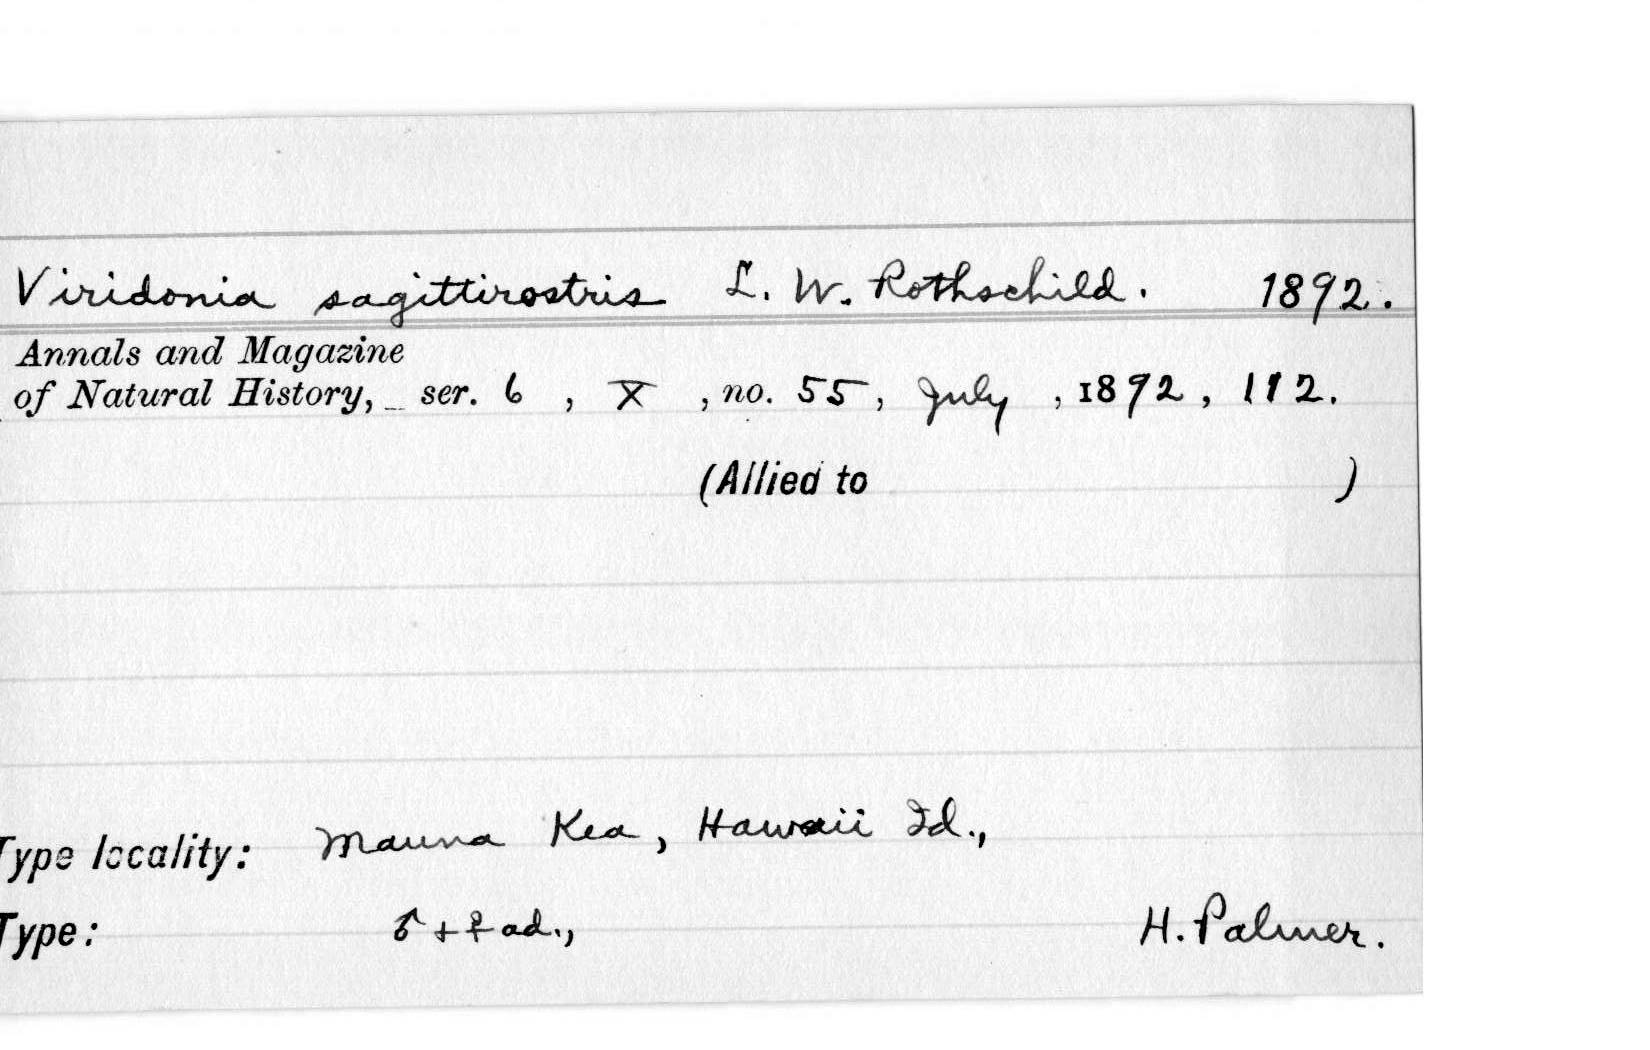 Viridonia sagittirostris L. W. Rothschild. 1892.
Annals and Magazine
of Natural History, ser. 6, X, no. 55, July, 1892, 112.
(Allied to )
Type locality: Mauna Kea, Hawaii Id.,
Type: ♂ + ♀ ad., H. Palmer.